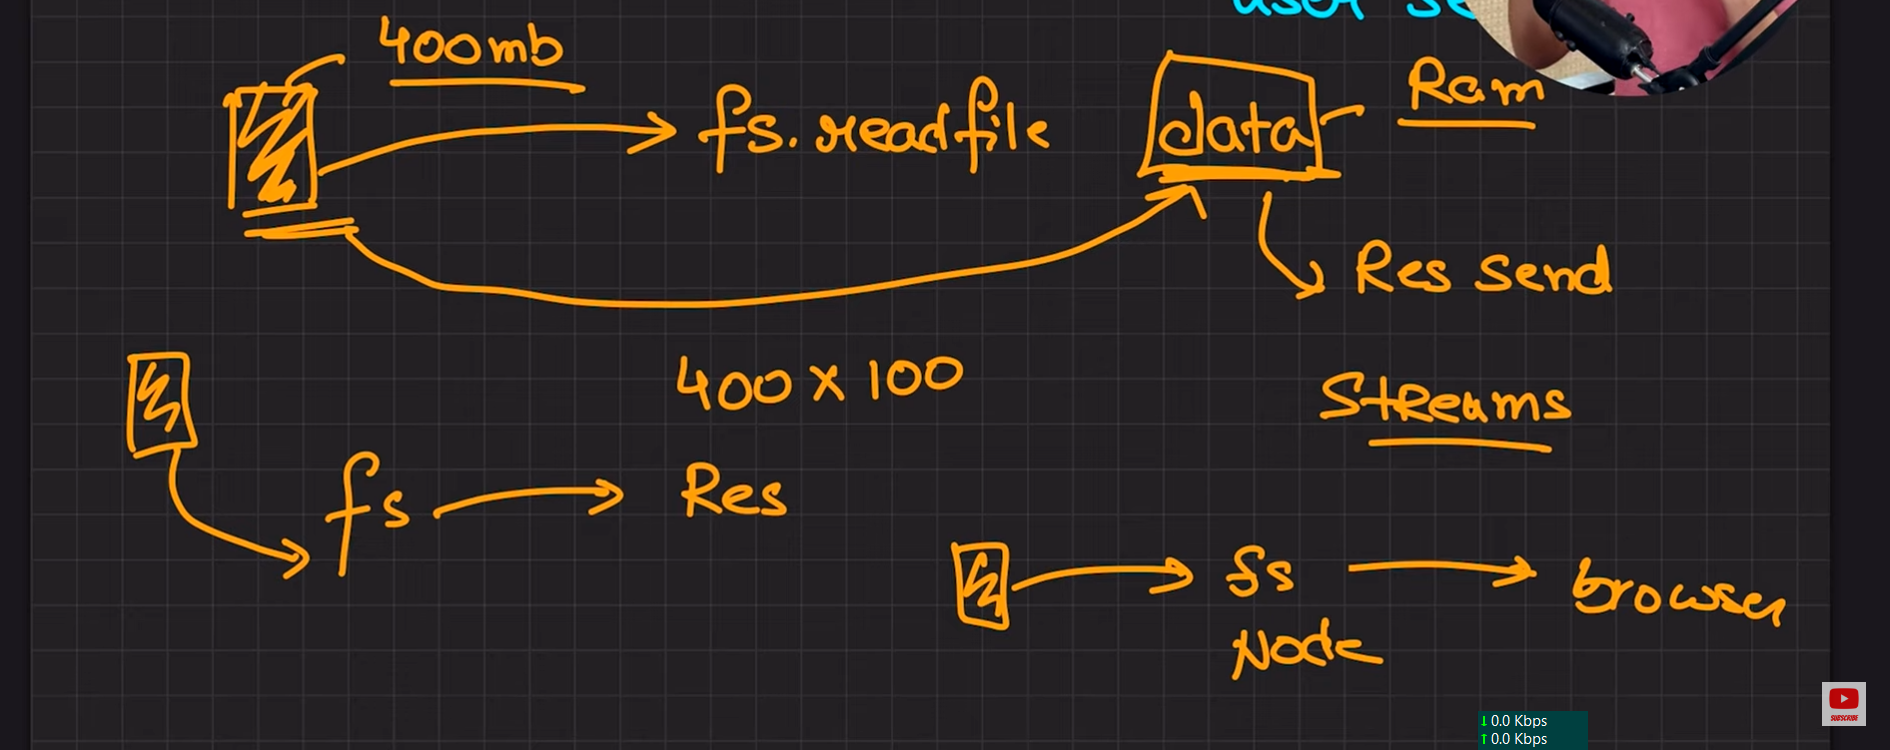 user se
400mb
fs.readfile
data
Ram
Res Send
400 x 100
Streams
fs
Res
fs
browser
Node
SUBSCRIBE
↓ 0.0 Kbps
↑ 0.0 Kbps